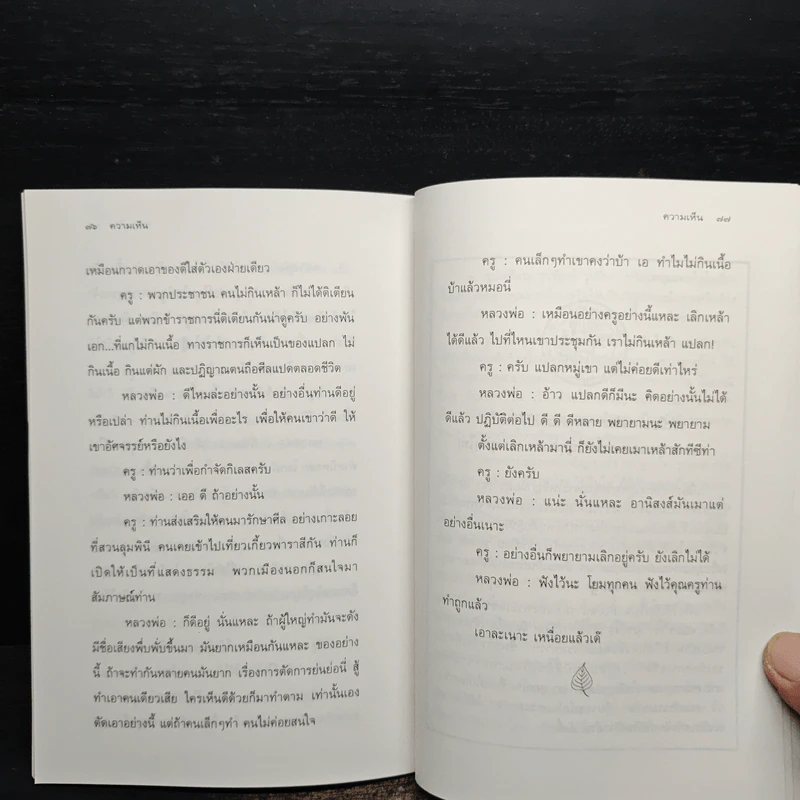 ๗๖ ความเห็น
เหมือนกวาดเอาของดีใส่ตัวเองฝ่ายเดียว
ครู : พวกประชาชน คนไม่กินเหล้า ก็ไม่ได้ติเตียน
กันครับ แต่พวกข้าราชการนี่ติเตียนกันน่าดูครับ อย่างพัน
เอก...ที่แกไม่กินเนื้อ ทางราชการก็เห็นเป็นของแปลก ไม่
กินเนื้อ กินแต่ผัก และปฏิญาณตนถือศีลแปดตลอดชีวิต
หลวงพ่อ : ดีไหมล่ะอย่างนั้น อย่างอื่นท่านดีอยู่
หรือเปล่า ท่านไม่กินเนื้อเพื่ออะไร เพื่อให้คนเขาว่าดี ให้
เขาอัศจรรย์หรือยังไง
ครู : ท่านว่าเพื่อกำจัดกิเลสครับ
หลวงพ่อ : เออ ดี ถ้าอย่างนั้น
ครู : ท่านส่งเสริมให้คนมารักษาศีล อย่างเกาะลอย
ที่สวนลุมพินี คนเคยเข้าไปเที่ยวเกี้ยวพาราสีกัน ท่านก็
เปิดให้เป็นที่แสดงธรรม พวกเมืองนอกก็สนใจมา
สัมภาษณ์ท่าน
หลวงพ่อ : ก็ดีอยู่ นั่นแหละ ถ้าผู้ใหญ่ทำมันจะดัง
มีชื่อเสียงพึ่บพั่บขึ้นมา มันยากเหมือนกันแหละ ของอย่าง
นี้ ถ้าจะทำกันหลายคนมันยาก เรื่องการตัดการย่นย่อนี่ สู้
ทำเอาคนเดียวเสีย ใครเห็นดีด้วยก็มาทำตาม เท่านั้นเอง
ตัดเอาอย่างนี้ แต่ถ้าคนเล็กๆทำ คนไม่ค่อยสนใจ
ความเห็น ๗๗
ครู : คนเล็กๆทำเขาคงว่าบ้า เอ ทำไมไม่กินเนื้อ
บ้าแล้วหมอนี่
หลวงพ่อ : เหมือนอย่างครูอย่างนี้แหละ เลิกเหล้า
ได้ดีแล้ว ไปที่ไหนเขาประชุมกัน เราไม่กินเหล้า แปลก!
ครู : ครับ แปลกหมู่เขา แต่ไม่ค่อยดีเท่าไหร่
หลวงพ่อ : อ้าว แปลกดีก็มีนะ คิดอย่างนั้นไม่ได้
ดีแล้ว ปฏิบัติต่อไป ดี ดี ดีหลาย พยายามนะ พยายาม
ตั้งแต่เลิกเหล้ามานี่ ก็ยังไม่เคยเมาเหล้าสักทีซีท่า
ครู : ยังครับ
หลวงพ่อ : แน่ะ นั่นแหละ อานิสงส์มันเมาแต่
อย่างอื่นเนาะ
ครู : อย่างอื่นก็พยายามเลิกอยู่ครับ ยังเลิกไม่ได้
หลวงพ่อ : ฟังไว้นะ โยมทุกคน ฟังไว้คุณครูท่าน
ทำถูกแล้ว
เอาละเนาะ เหนื่อยแล้วเด๊